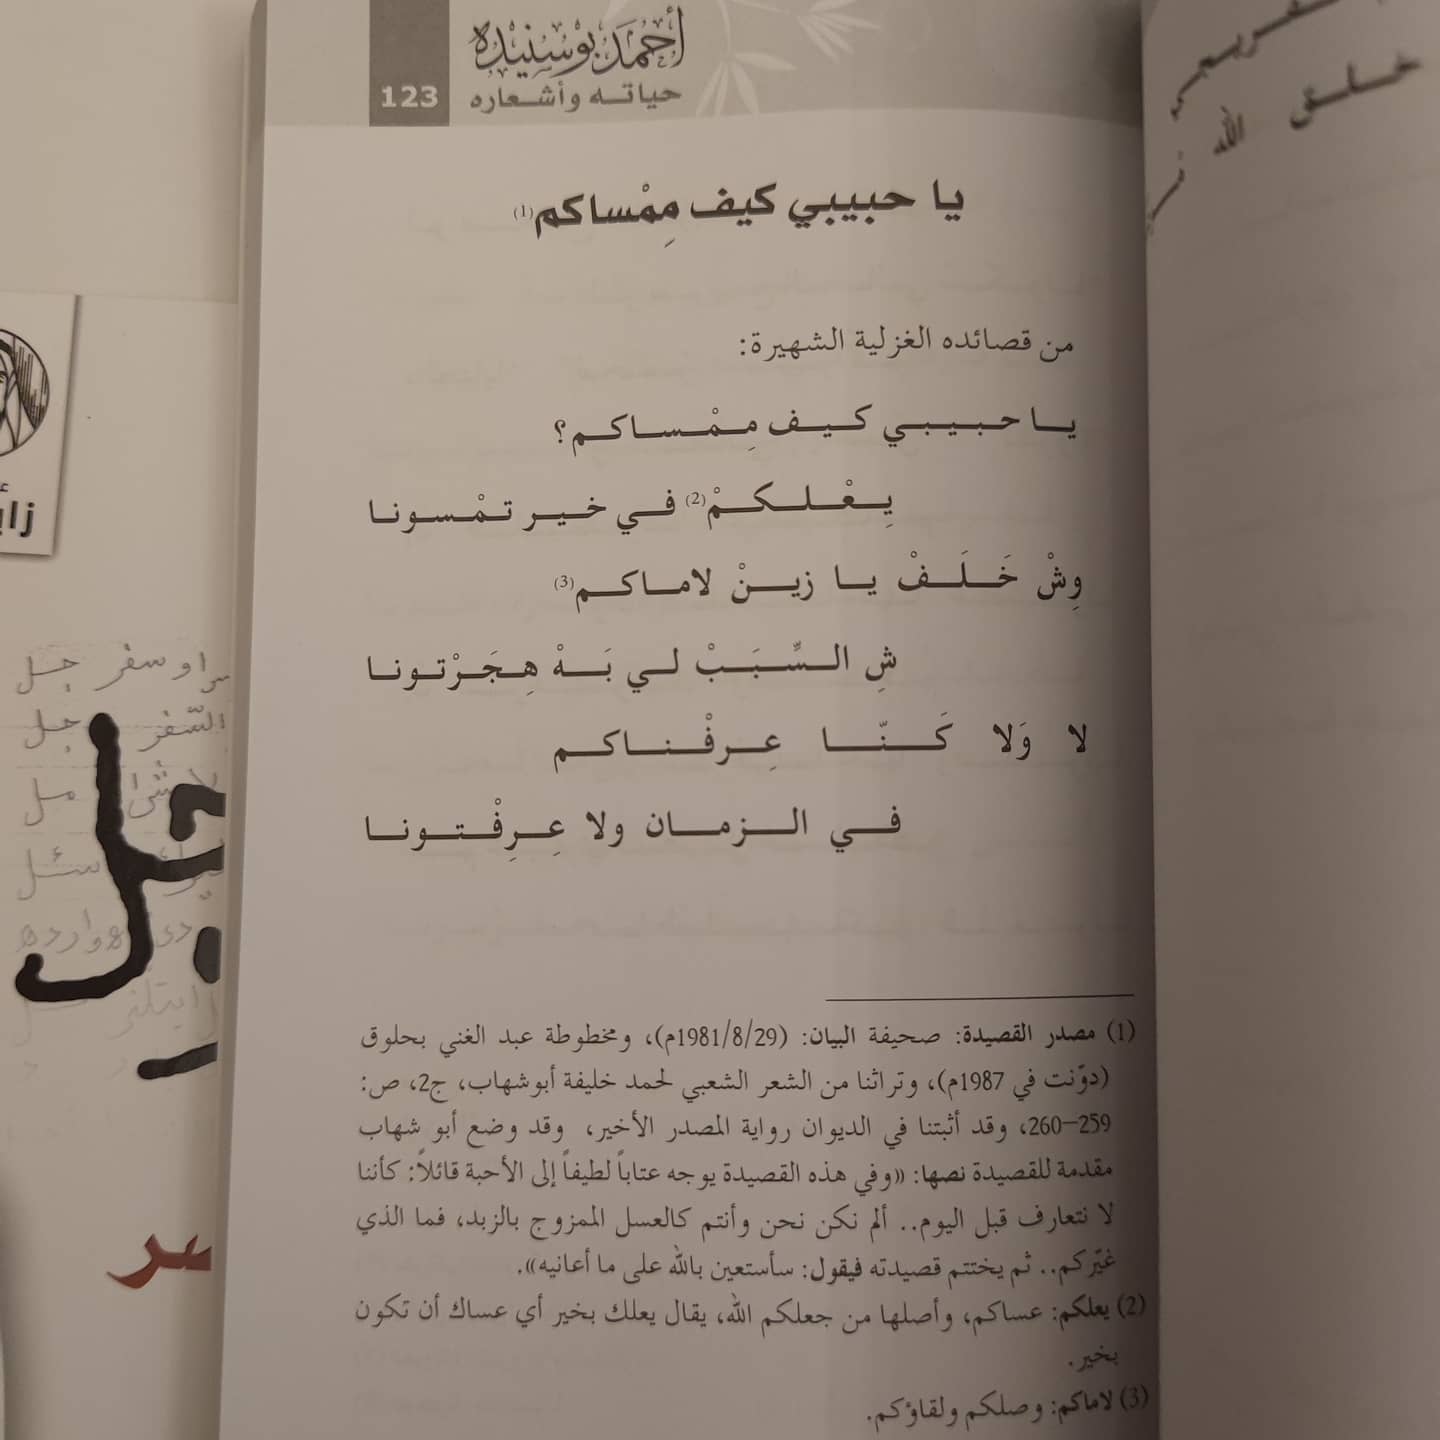 أحمد بوسنيده
حياته وأشعاره
123
يا حبيبي كيف مِمْساكم(1)
من قصائده الغزلية الشهيرة:
يا حبيبي كيف مِمْساكم؟
يِعْلكمْ(2) في خير تمْسونا
وِشْ خَلَفْ يا زينْ لاماكم(3)
شِ السِّبَبْ لي بَهْ هِجَرْتونا
لا وَلا كَنّا عِرفْناكم
في الزمان ولا عِرِفْتونا
(1) مصدر القصيدة: صحيفة البيان: (1981/8/29م)، ومخطوطة عبد الغني بحلوق
(دوّنت في 1987م)، وتراثنا من الشعر الشعبي لحمد خليفة أبوشهاب، ج2، ص:
259–260، وقد أثبتنا في الديوان رواية المصدر الأخير، وقد وضع أبو شهاب
مقدمة للقصيدة نصها: «وفي هذه القصيدة يوجه عتاباً لطيفاً إلى الأحبة قائلاً: كأننا
لا نتعارف قبل اليوم.. ألم نكن نحن وأنتم كالعسل الممزوج بالزبد، فما الذي
غيّركم.. ثم يختتم قصيدته فيقول: سأستعين بالله على ما أعانيه».
(2) يعلكم: عساكم، وأصلها من جعلكم الله، يقال يعلك بخير أي عساك أن تكون
بخير.
(3) لاماكم: وصلكم ولقاؤكم.
خلق الله
سفر جل
السّفر جل